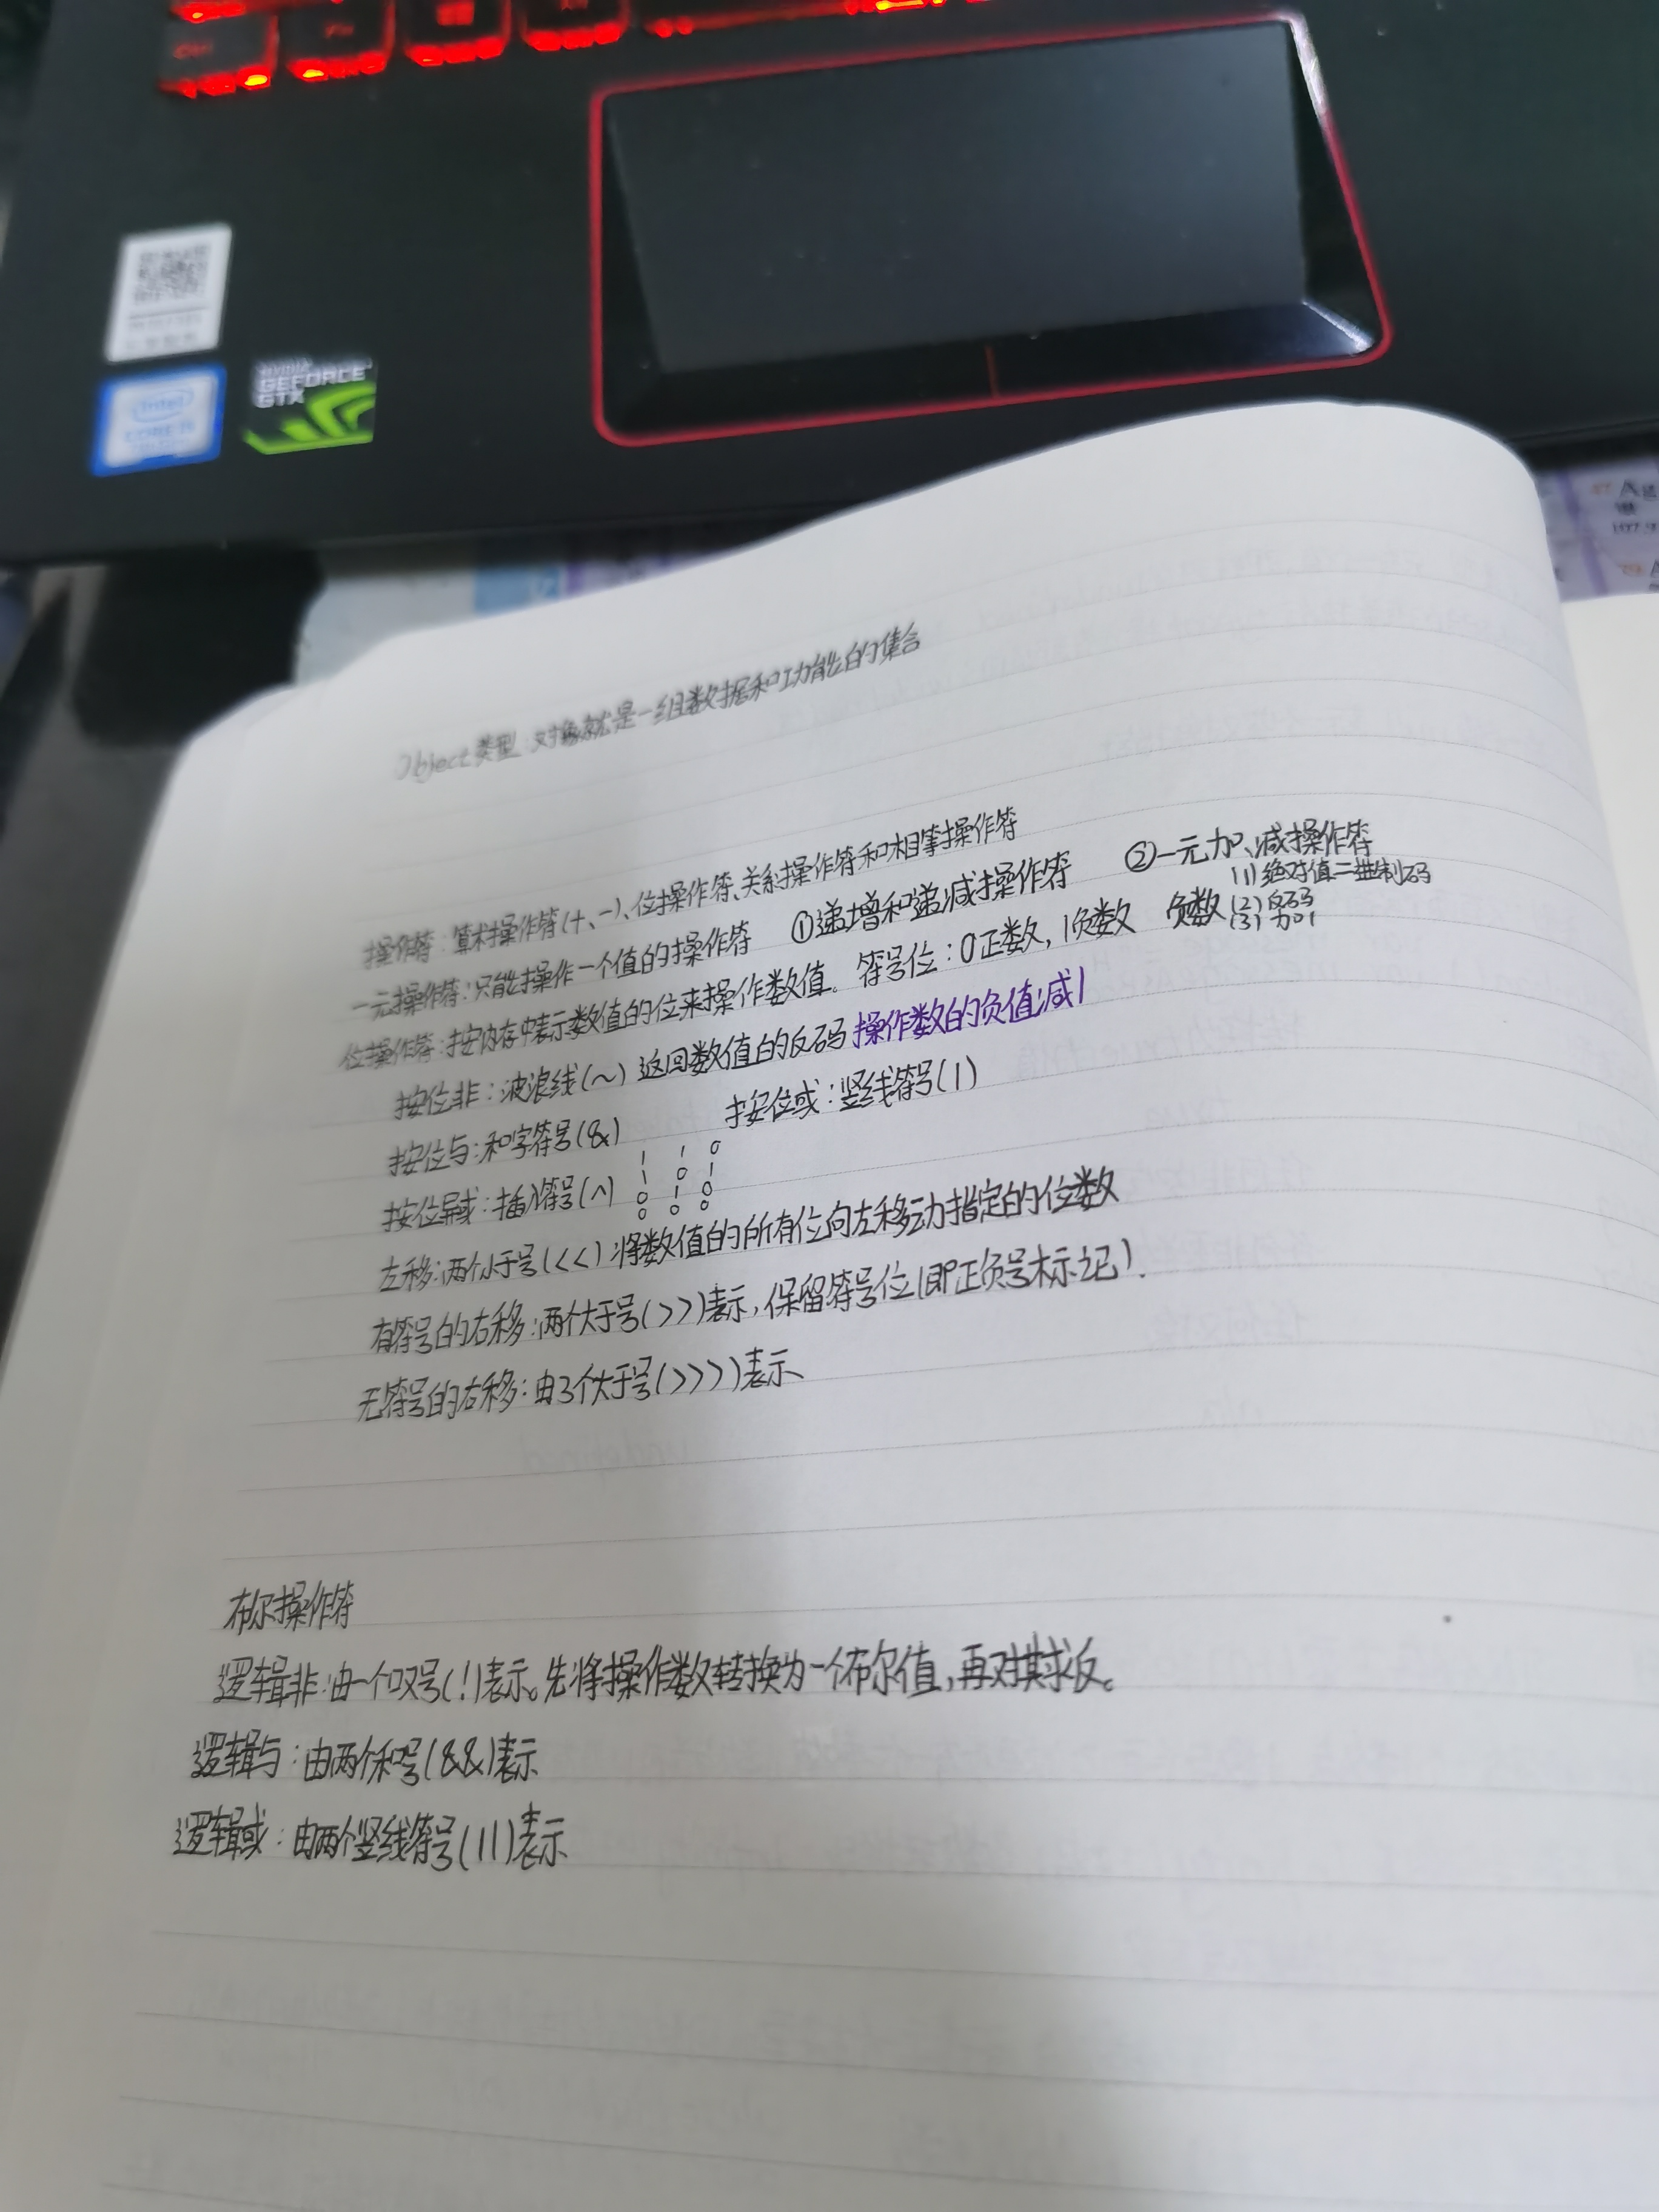 Ctrl
Fn
intel
CORE i5
NVIDIA
GEFORCE
GTX
Object类型:对象就是一组数据和功能的集合
操作符:算术操作符(+、-)、位操作符、关系操作符和相等操作符
一元操作符:只能操作一个值的操作符 ①递增和递减操作符 ②一元加、减操作符
位操作符:按内存中表示数值的位来操作数值。符号位:0正数,1负数 负数 (1)绝对值二进制码
(2)反码
(3)加1
按位非:波浪线(~)返回数值的反码 操作数的负值减1
按位与:和字符号(&) 按位或:竖线符号(|)
按位异或:插入符号(^)
1 1 0
1 0 1
0 1 0
0 0 0
左移:两个小于号(<<)将数值的所有位向左移动指定的位数
有符号的右移:两个大于号(>>)表示,保留符号位(即正负号标记).
无符号的右移:由3个大于号(>>>)表示
布尔操作符
逻辑非:由一个叹号(!)表示。先将操作数转换为一个布尔值,再对其求反。
逻辑与:由两个和号(&&)表示
逻辑或:由两个竖线符号(||)表示